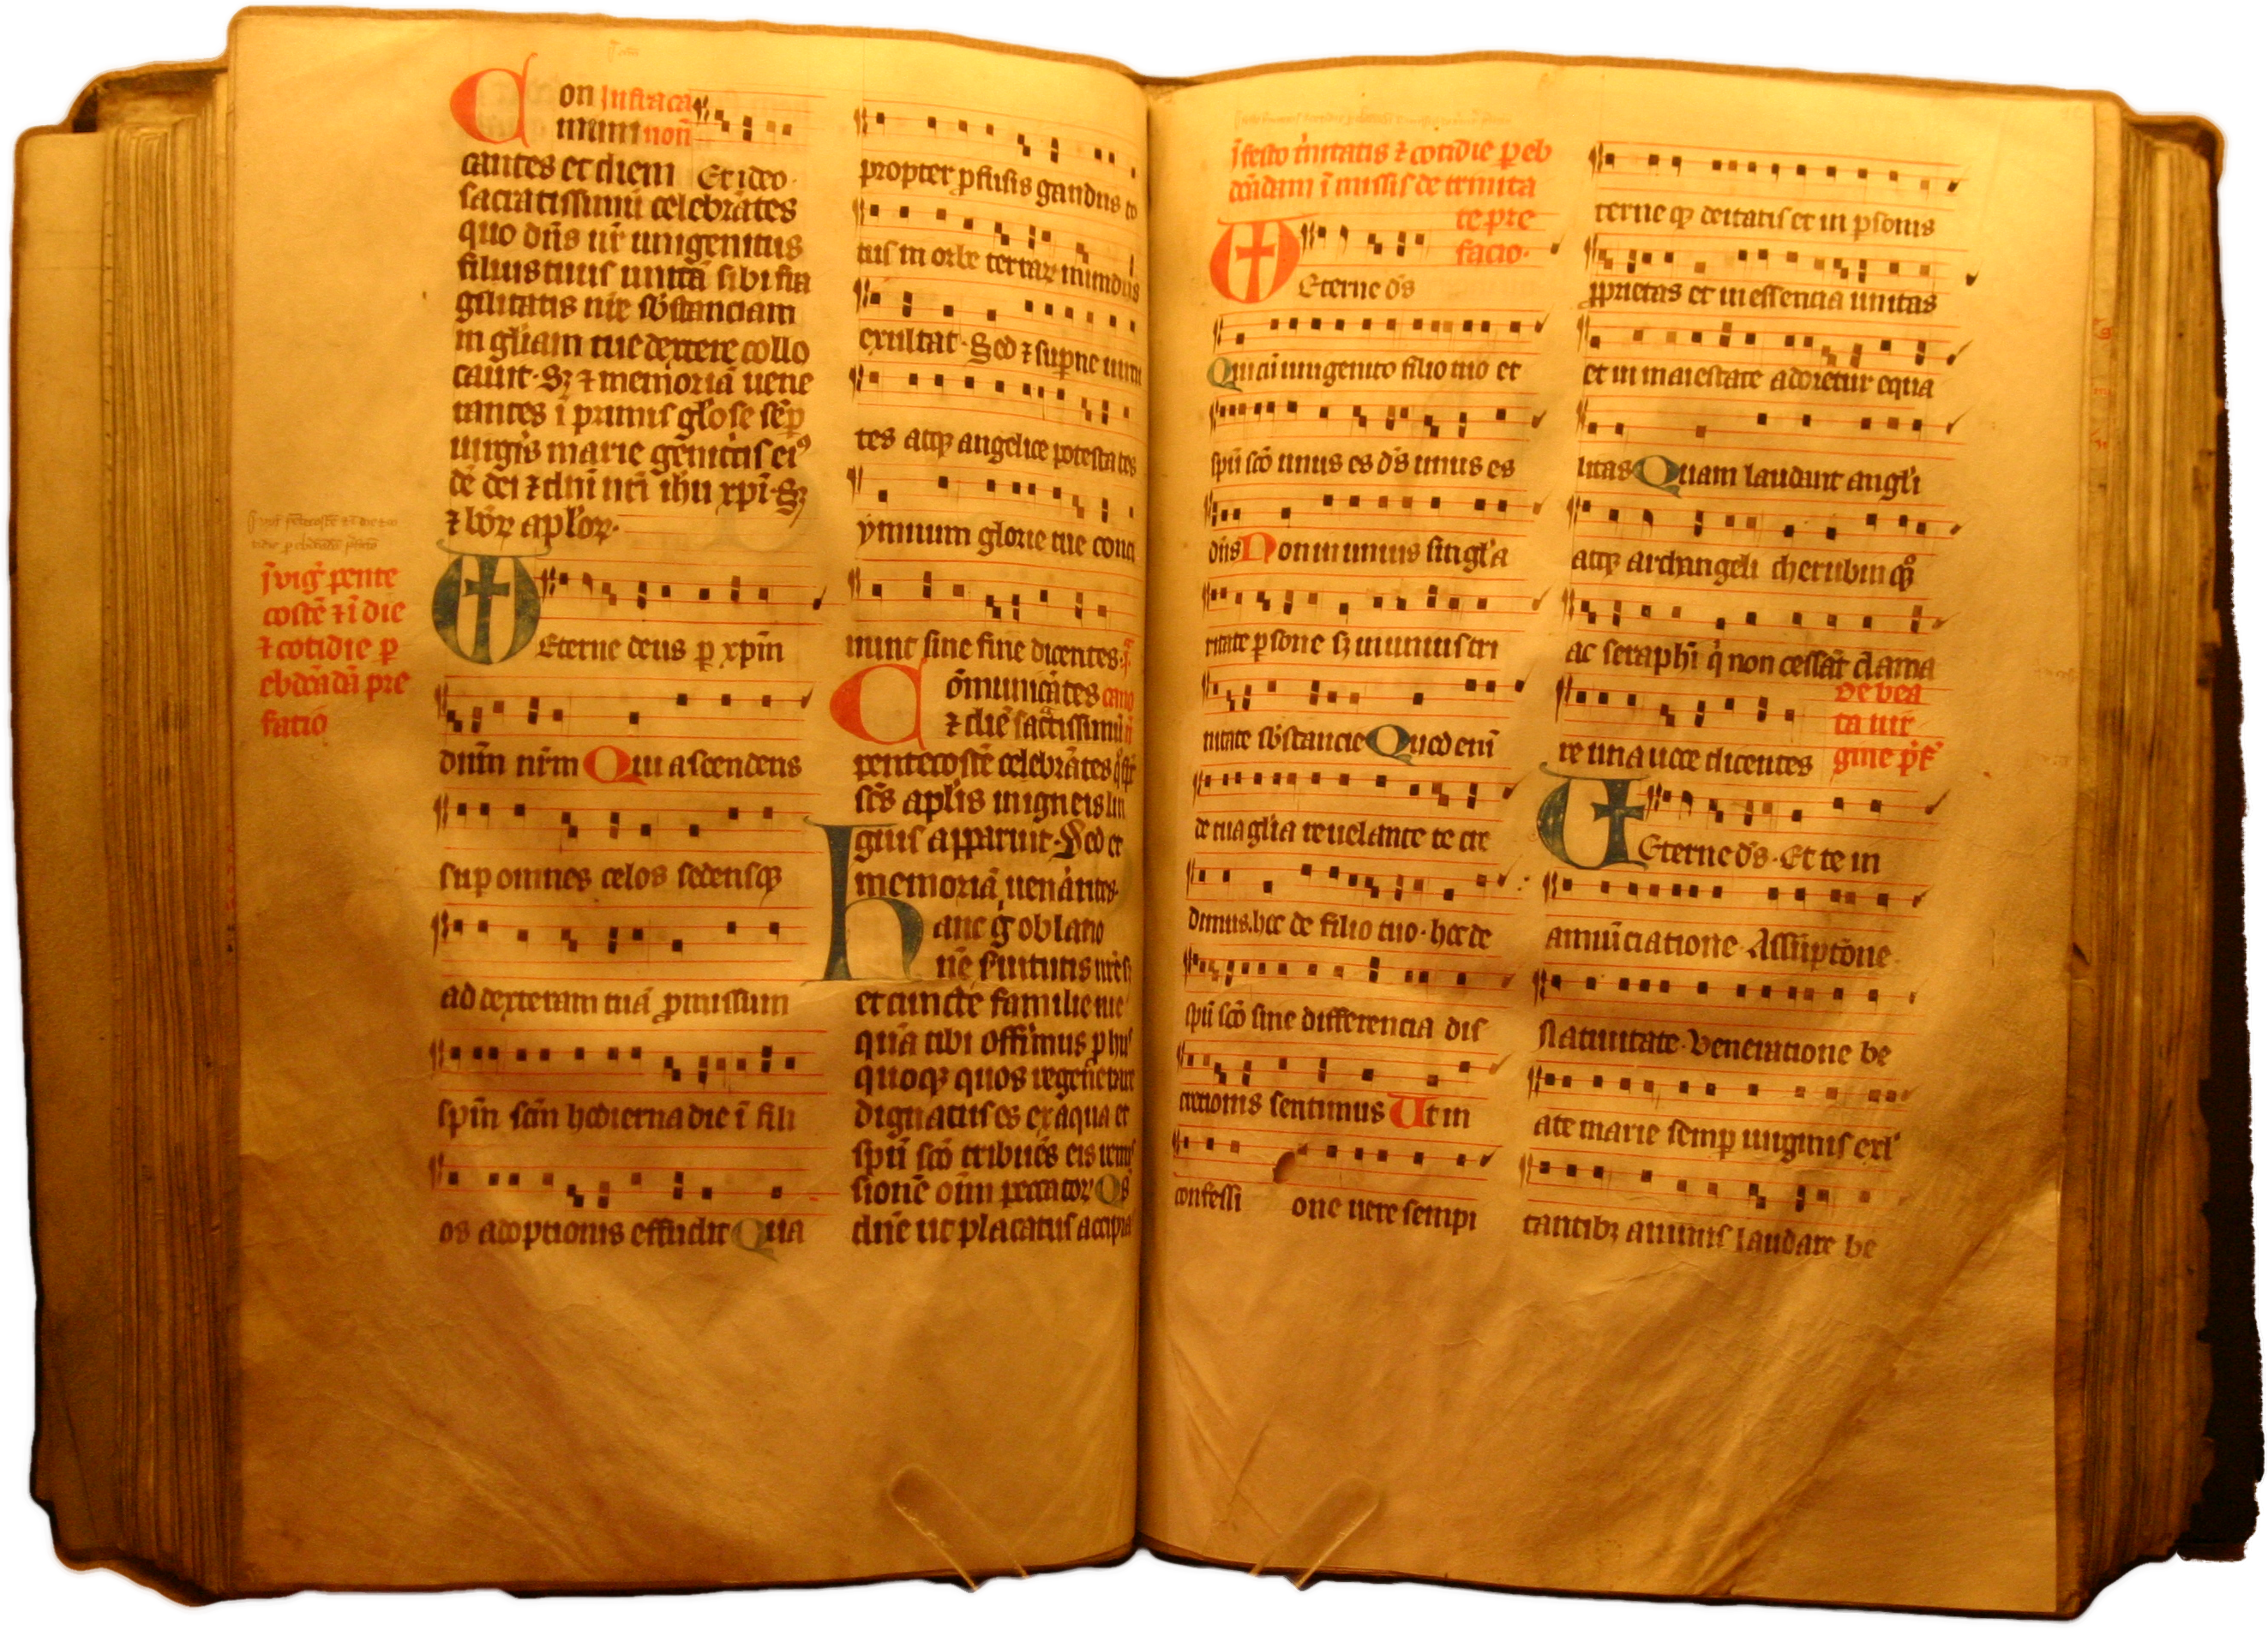 Con Infra ca
muni non
cantes et diem Et ideo
sacratissimũ celebrãtes
quo dñs nr̃ unigenitus
filius tuus unitã sibi fra
gilitatis nr̃e sb̃stanciam
in gl̃iam tue dextere collo
cauit · Sꝫ ⁊ memoriã uene
rantes ĩ primis gl̃ose sẽp
uirgĩs marie geñitcis eiꝰ
dẽ dei ⁊ dñi nr̃i ih̃u xp̃i · Sꝫ
⁊ bõꝝ apl̃oꝝ ·
ĩ vig̃ pente
costẽ ⁊ ĩ die
⁊ cotidie ꝑ
ebdõadã pre
fatiõ
Eterne deus ꝑ xp̃m
dñm nr̃m Qui ascendens
suꝑ omnes celos sedensqꝫ
ad dexteram tuã ꝓmissum
sp̃m sc̃m hodierna die ĩ fili
os adoptionis effudit Qua
propter ꝓfusis gaudiis to
tus in orbe terraꝝ mundus
exultat · Sed ⁊ suꝑne uirtu
tes atqꝫ angelice potestates
ymnum glorie tue conci
nunt sine fine dicentes ·
Cõmunicãtes cano
⁊ diẽ sac̃tissimũ
pentecostẽ celebrãtes
sc̃s apl̃is in igneis lin
guis apparuit · Sed et
memoriã uenãntes
Hanc g̃ oblatio
nẽ seruitutis nr̃e s
et cuncte familie tue
quã tibi offerimus ꝑ hiis
quoqꝫ quos regeñerare
dignatus es ex aqua et
sp̃u sc̃o tribuẽs eis remis
sionẽ oĩm peccatoꝝ Qs
dñe ut placatus accipia
ĩ festo t̃nitatis ⁊ cotidie ꝑ eb
dõadam ĩ missis de trinita
te pre
facio ·
Eterne ds̃
Qui cũ unigenito filio tuo et
sp̃u sc̃o unus es ds̃ unus es
dñs Non in unius singl̃a
ritate ꝑsone sꝫ in unius tri
nitate sb̃stancie Quod enĩ
de tua gl̃ia reuelante te cre
dimus · hoc de filio tuo · hoc de
sp̃u sc̃o sine differencia dis
crecionis sentimus Ut in
confessi one uere sempi
terne qꝫ deitatis et in ꝑsonis
ꝓprietas et in essencia unitas
et in maiestate adoretur equa
litas Quam laudant angl̃i
atqꝫ archangeli cherubin qꝫ
ac seraphĩ q̃ non cessãt clama
re una uoce dicentes De bea
ta uir
gine p̃f
Eterne ds̃ · Et te in
annũciatione · Assũptõne ·
Natiuitate · Veneratione be
ate marie semꝑ uirginis exl̃
tantibꝫ animis laudare be